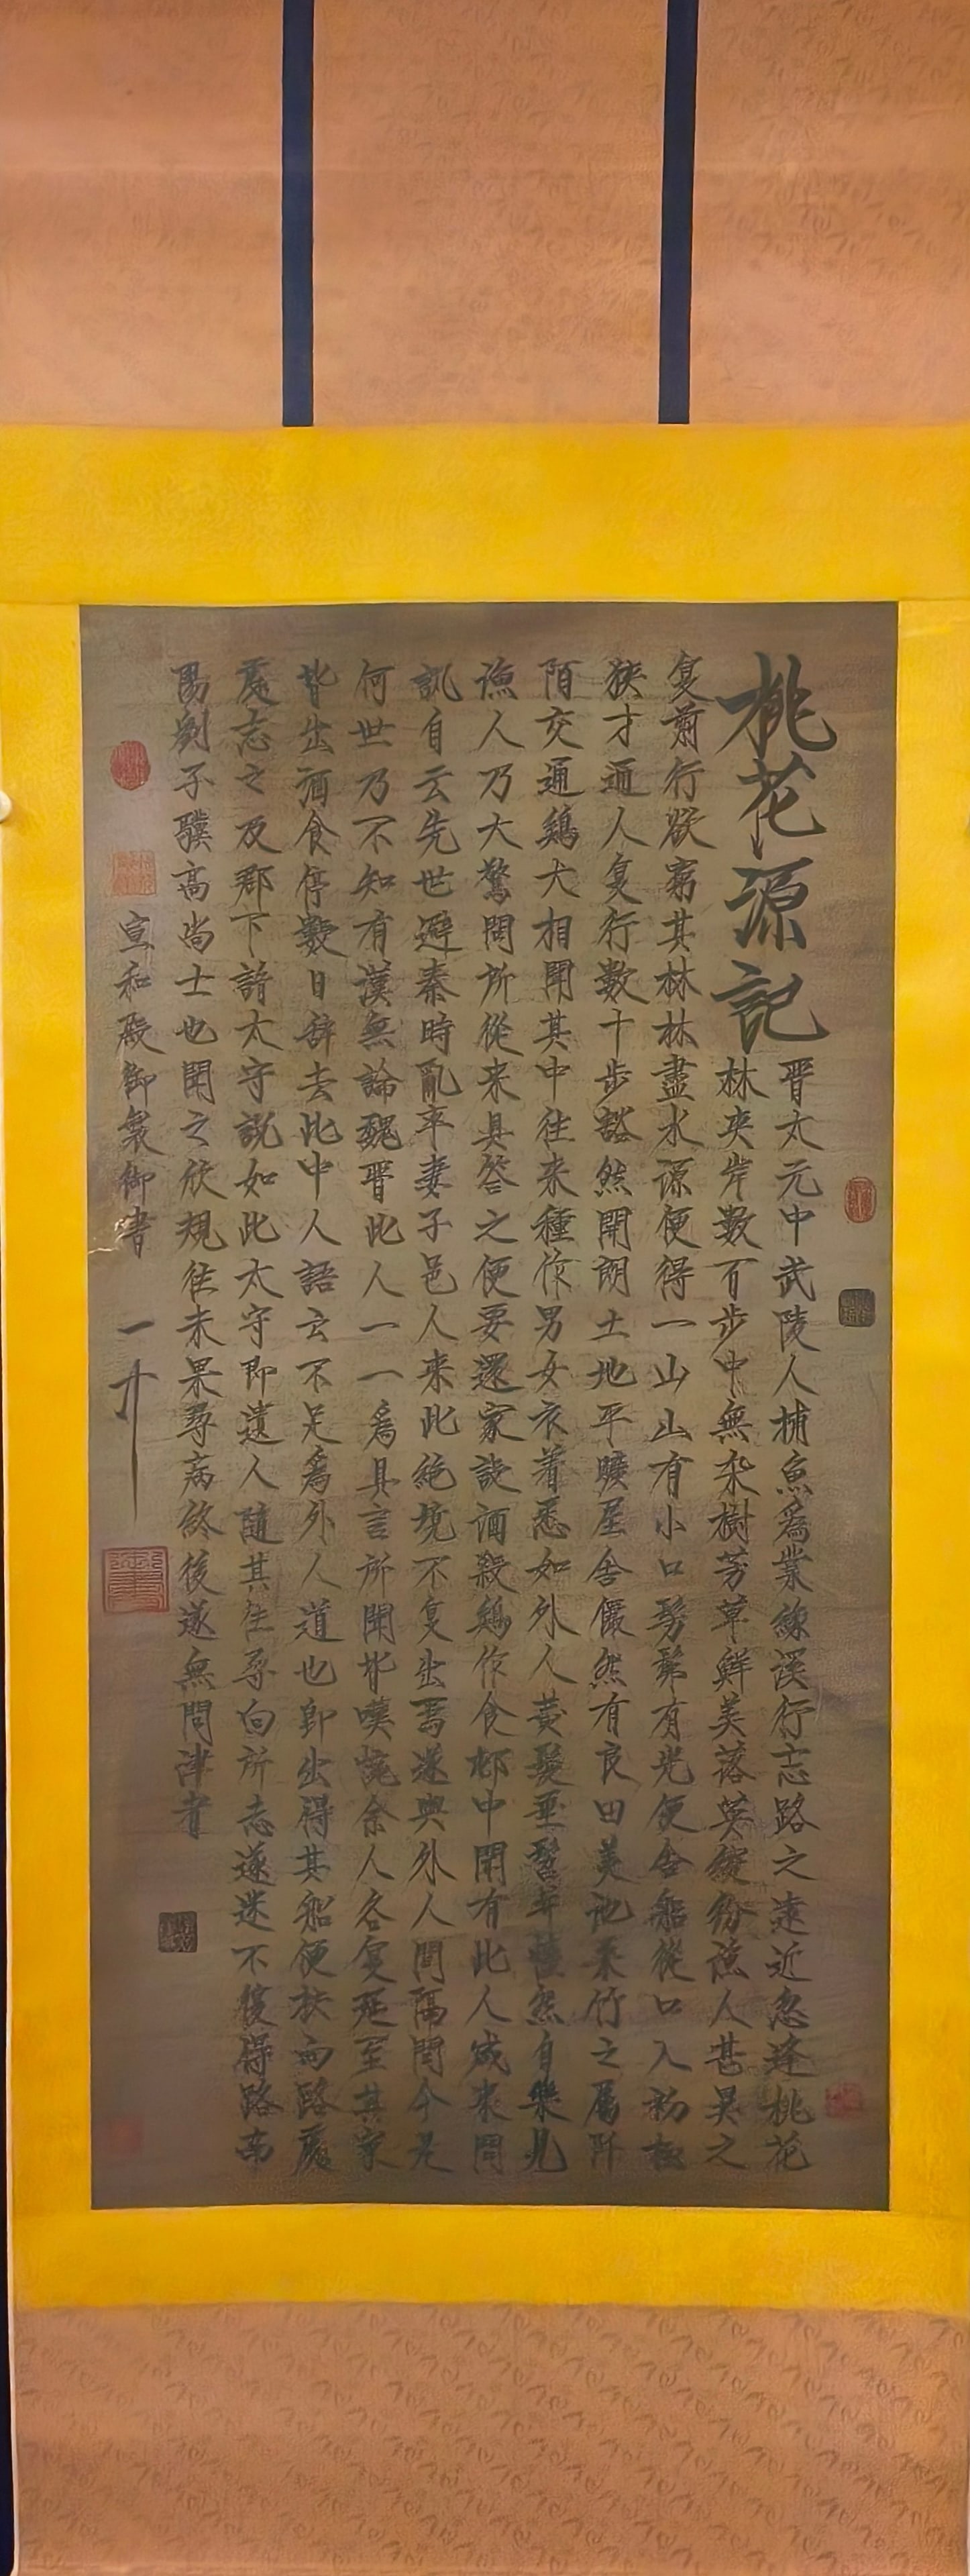 桃花源記
晋太元中武陵人捕魚爲業緣溪行忘路之遠近忽逢桃花
林夹岸數百步中無杂樹芳草鮮美落英繽紛漁人甚異之
复前行欲窮其林林盡水源便得一山山有小口髣髴有光便舍船從口入初極
狹才通人复行數十步豁然開朗土地平曠屋舍儼然有良田美池桑竹之屬阡
陌交通鷄犬相聞其中往来種作男女衣着悉如外人黄髮垂髫並怡然自樂見
漁人乃大驚問所從来具答之便要還家設酒殺鷄作食邨中聞有此人咸来問
訊自云先世避秦時亂率妻子邑人来此絶境不复出焉遂與外人間隔問今是
何世乃不知有漢無論魏晋此人一一爲具言所聞皆嘆惋余人各复延至其家
皆出酒食停數日辞去此中人語云不足爲外人道也即出得其船便扶向路處
處志之及郡下詣太守說如此太守即遣人隨其往尋向所志遂迷不復得路南
陽劉子驥高尚士也聞之欣規往未果尋病終後遂無問津者
宣和殿御製御書